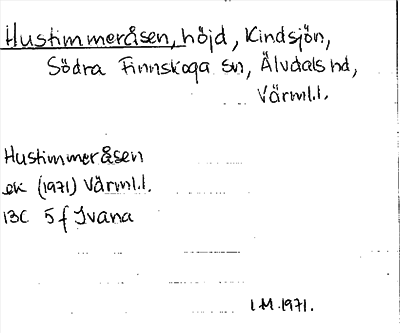 Hustimmeråsen, höjd, Kindsjön,
Södra Finnskoga sn, Älvdals hd,
Värml.l.
Hustimmeråsen
ek (1971) Värml.l.
13C 5 f Ivana
I.M. 1971.